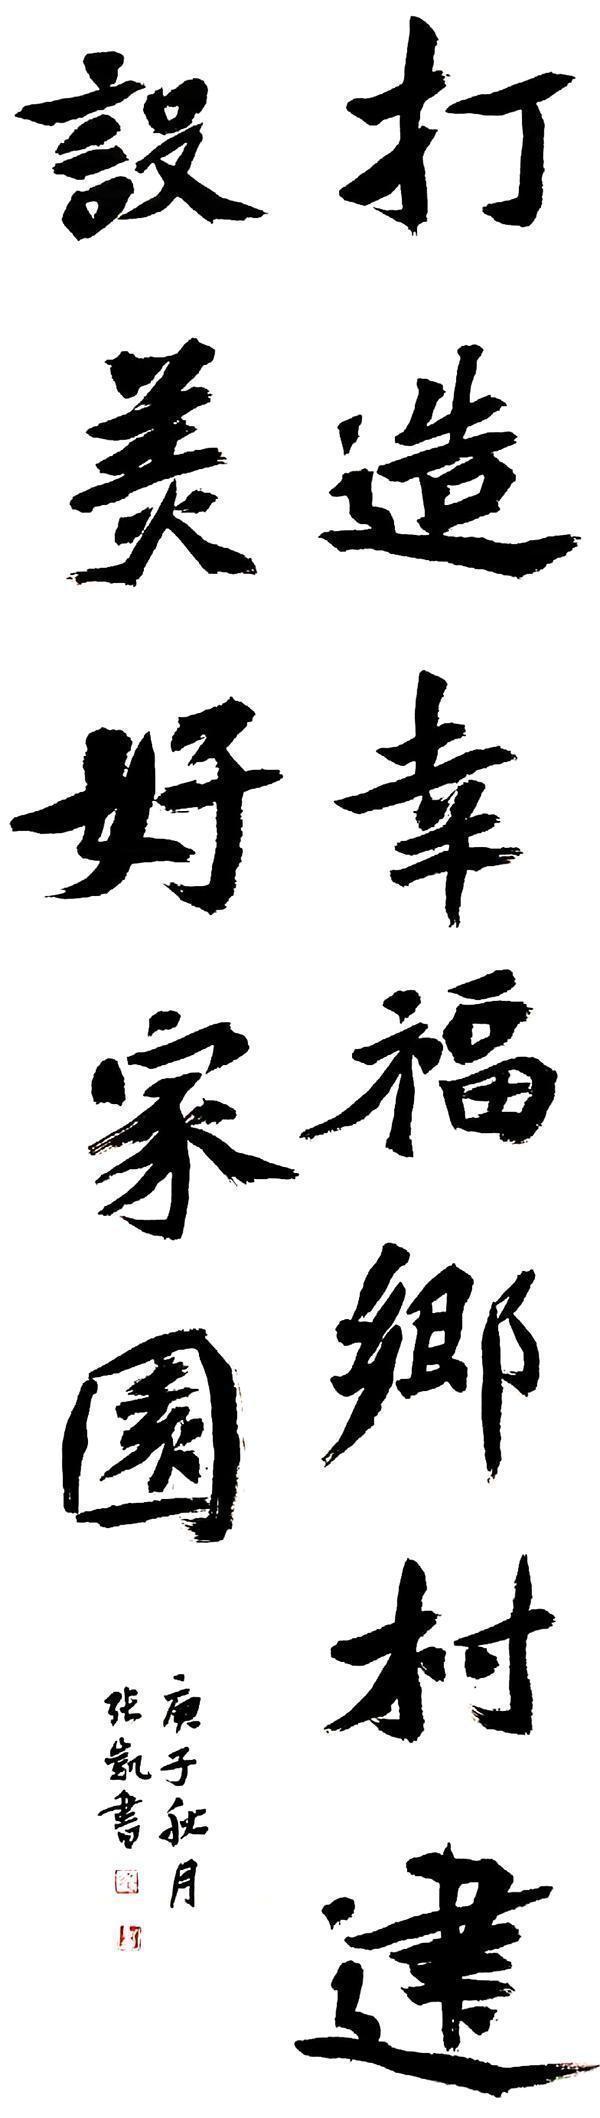 打造幸福鄉村建
設美好家園
庚子秋月
张凱書